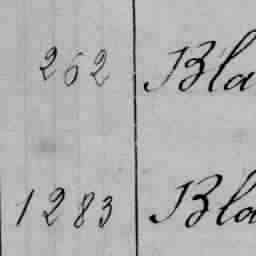 262 Bla
1283 Bla